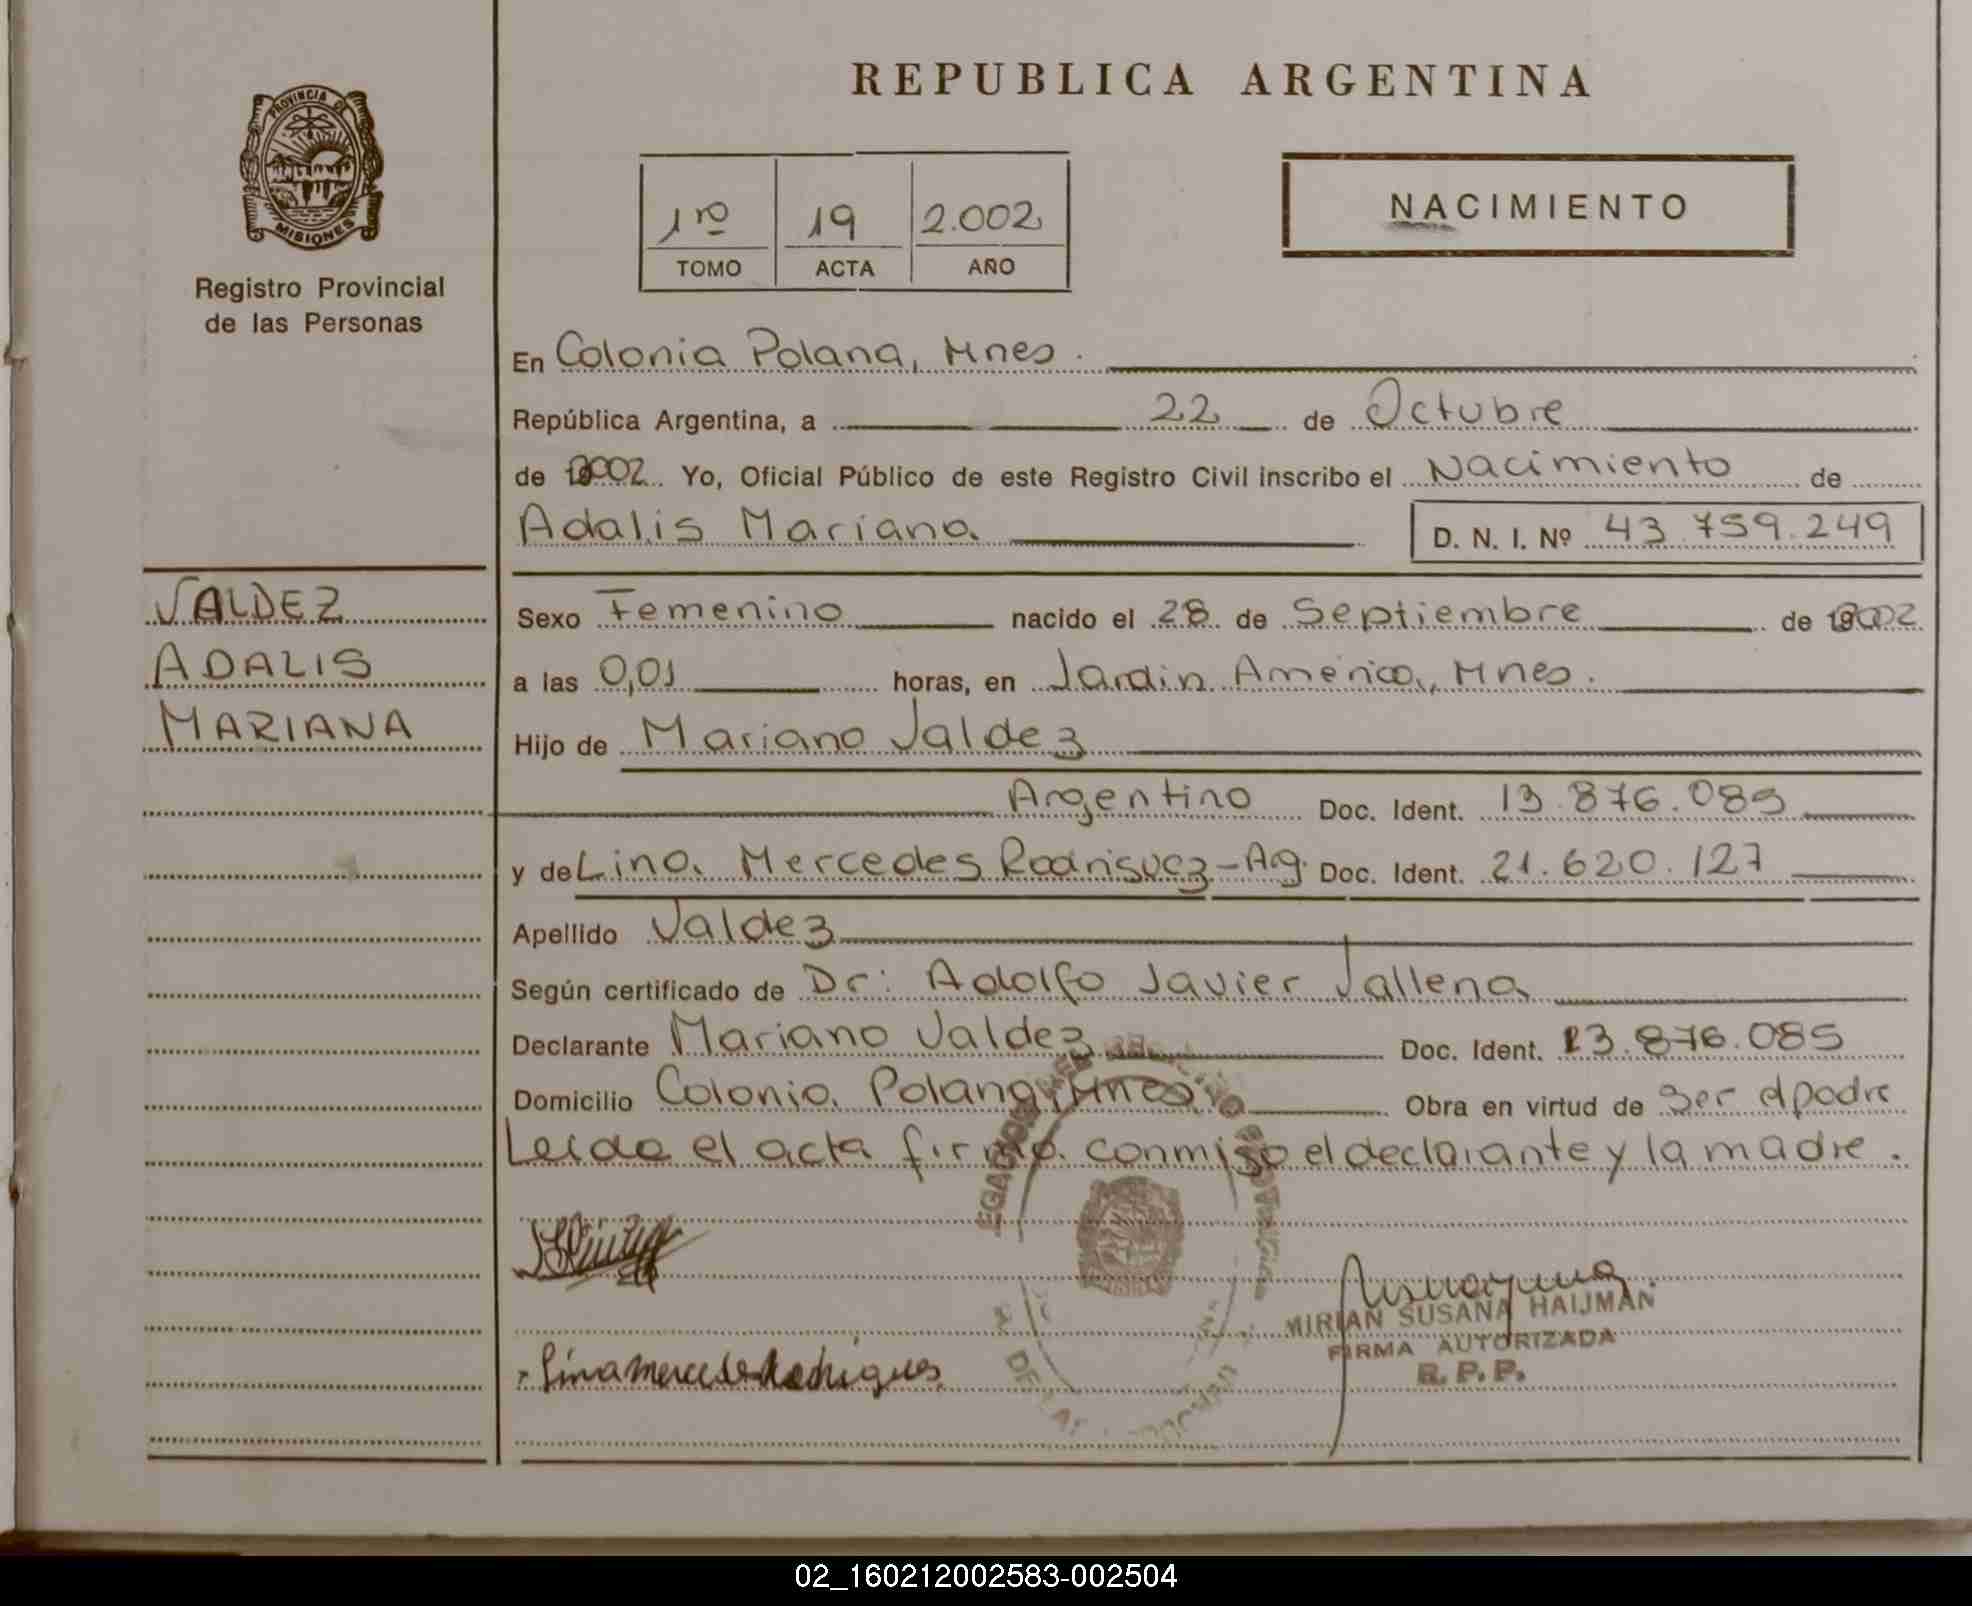 REPUBLICA ARGENTINA
PROVINCIA DE
MISIONES
Registro Provincial
de las Personas
1ro 19 2.002
TOMO ACTA AÑO
NACIMIENTO
En Colonia Polana, Mnes.
República Argentina, a 22 de Octubre
de 2002 Yo, Oficial Público de este Registro Civil inscribo el Nacimiento de
Adalis Mariana D. N. I. Nº 43.759.249
VALDEZ
ADALIS
MARIANA
Sexo Femenino nacido el 28 de Septiembre de 2002
a las 0,01 horas, en Jardin América, Mnes.
Hijo de Mariano Valdez
Argentino Doc. Ident. 13.876.085
y de Lina Mercedes Rodriguez-Arg. Doc. Ident. 21.620.127
Apellido Valdez
Según certificado de Dr: Adolfo Javier Vallena
Declarante Mariano Valdez Doc. Ident. 13.876.085
Domicilio Colonia Polana, Mnes. Obra en virtud de ser el padre
Leida el acta firma conmigo el declarante y la madre.
Lina Mercedes Rodrigues
MIRIAN SUSANA HAIJMAN
FIRMA AUTORIZADA
R. P. P.
02_160212002583-002504